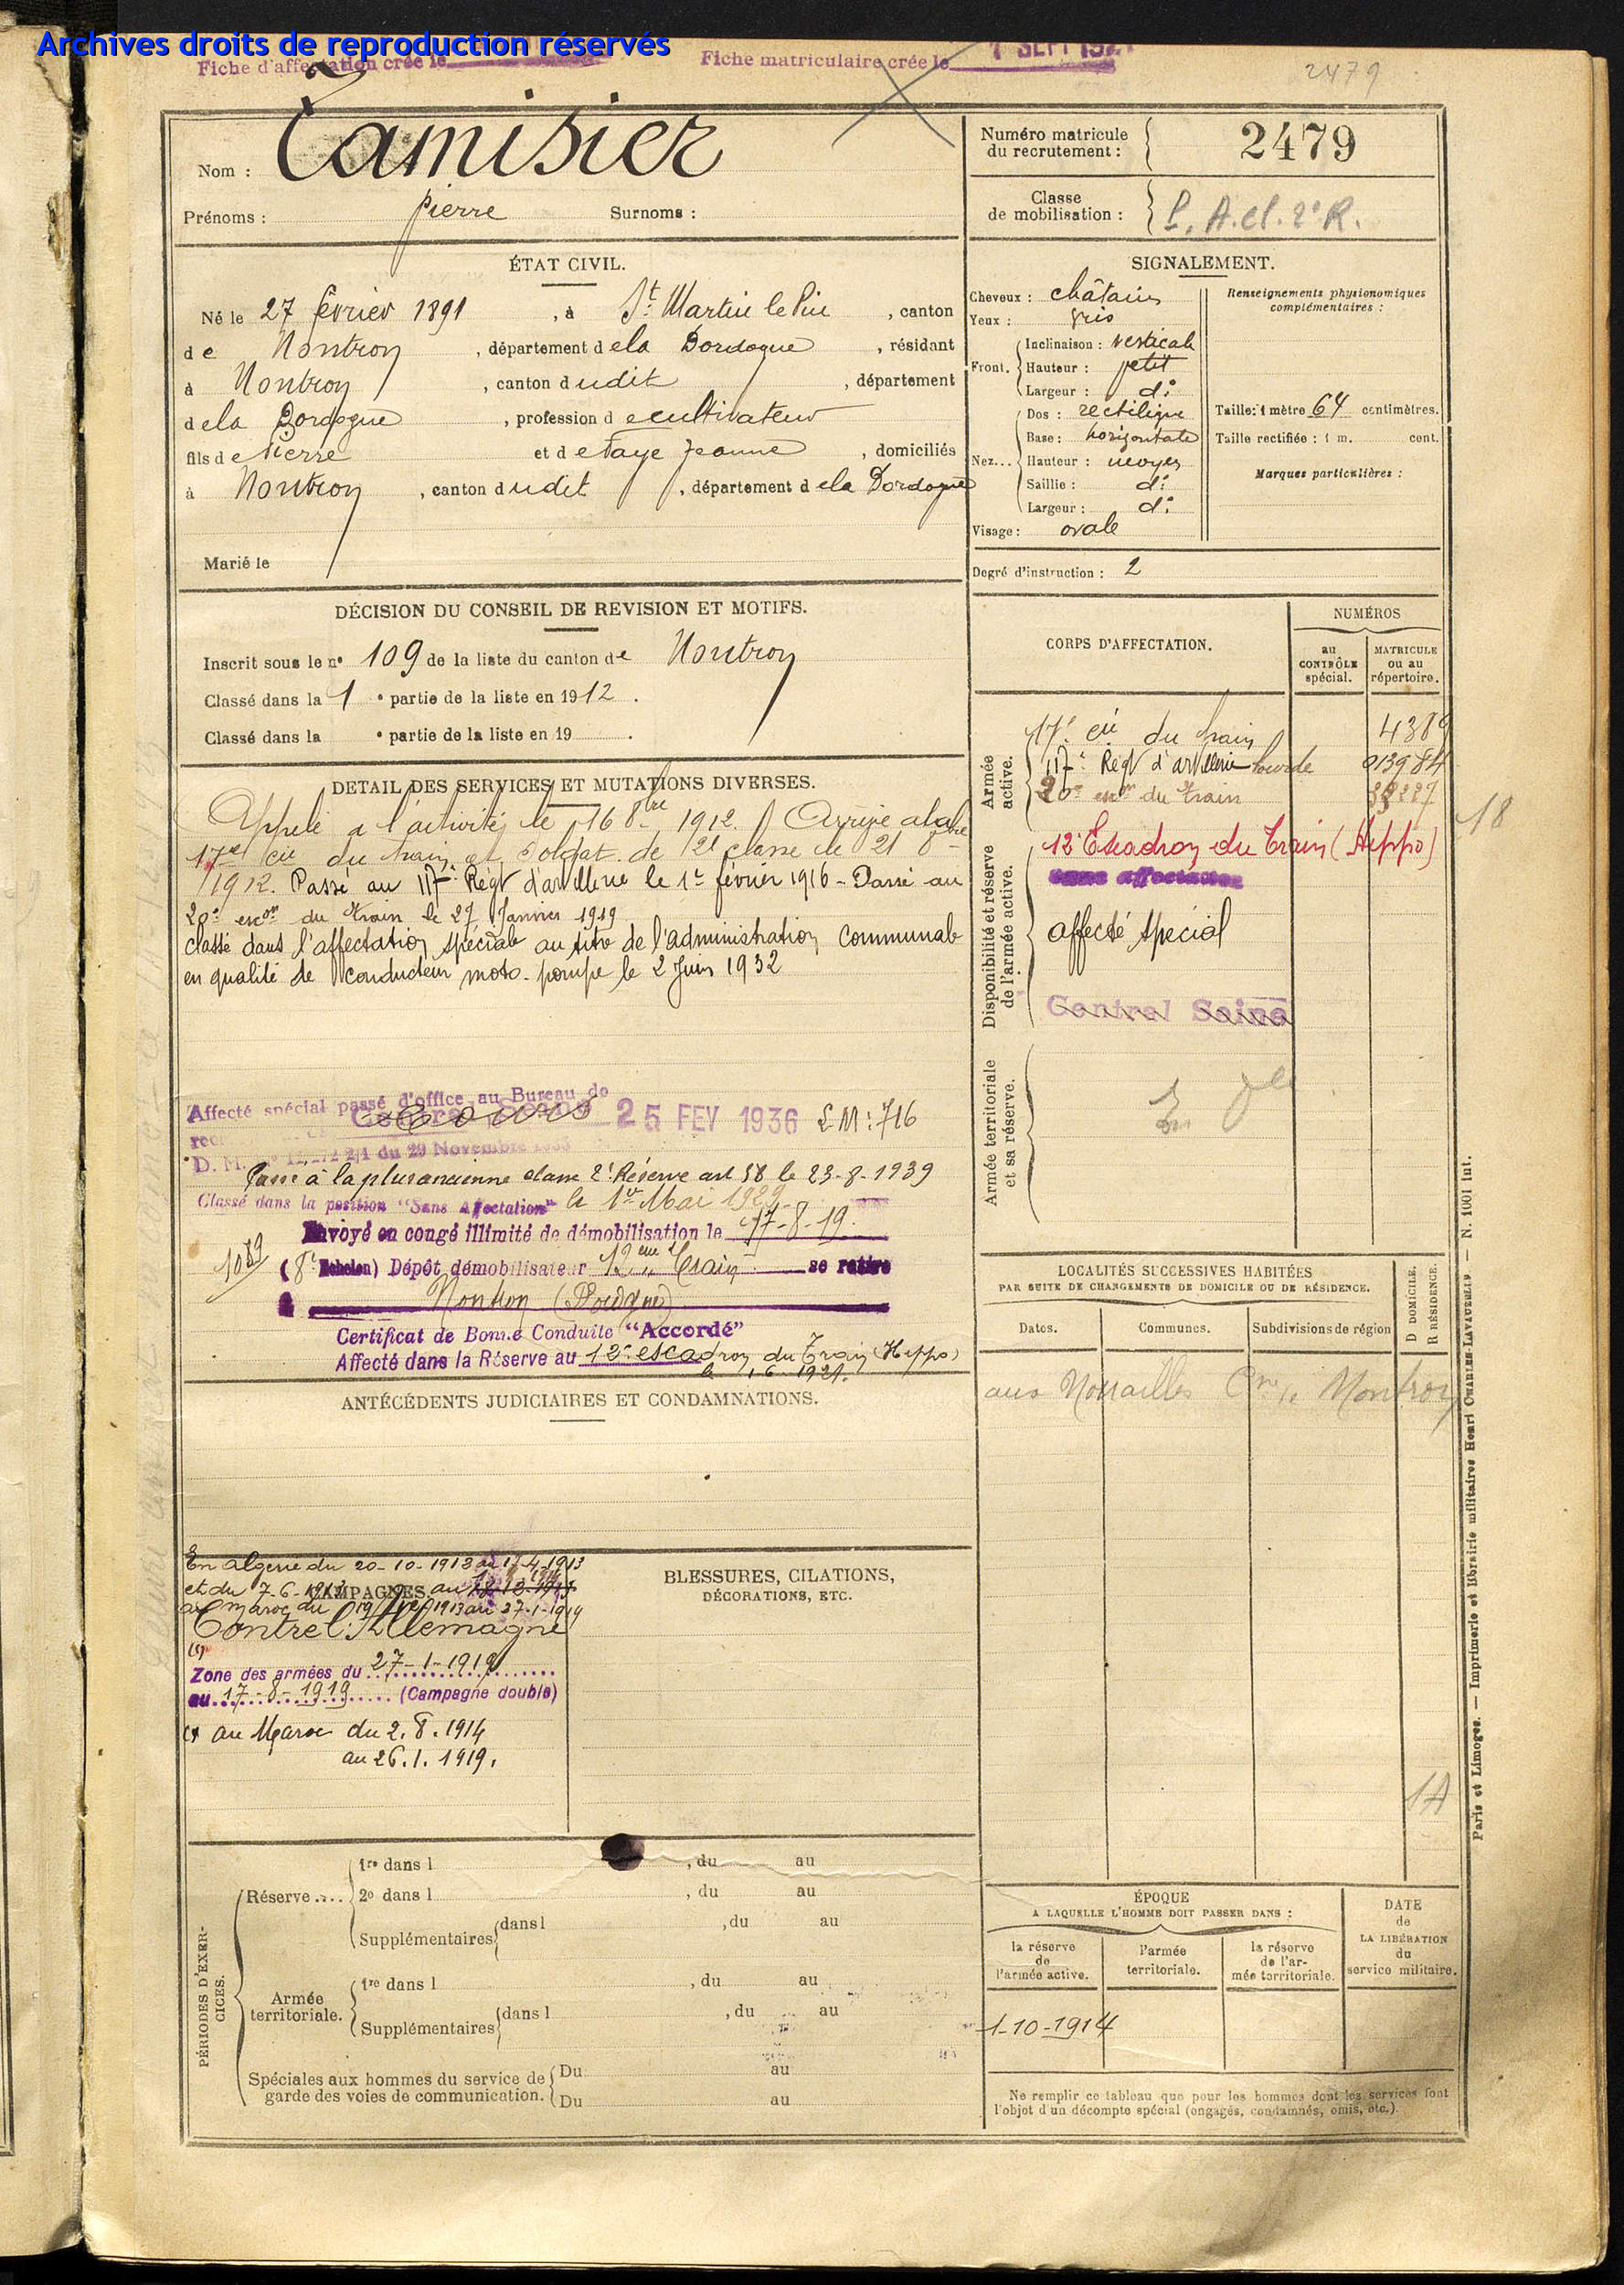 Archives droits de reproduction réservés
Fiche d'affectation crée le
Fiche matriculaire crée le 1 SEPT 192
2479
Nom : Tamisier
Prénoms : Pierre Surnoms :
Numéro matricule du recrutement : 2479
Classe de mobilisation : P. A. cl. 2e R.
ÉTAT CIVIL.
Né le 27 février 1891, à St Martin le Pin, canton
de Nontron, département de la Dordogne, résidant
à Nontron, canton dudit, département
de la Dordogne, profession de cultivateur
fils de Pierre et de Faye Jeanne, domiciliés
à Nontron, canton dudit, département de la Dordogne
Marié le
SIGNALEMENT.
Cheveux : châtains
Yeux : gris
Front. Inclinaison : verticale
Hauteur : petit
Largeur : do
Nez... Dos : rectiligne
Base : horizontale
Hauteur : moyen
Saillie : do
Largeur : do
Visage : ovale
Renseignements physionomiques complémentaires :
Taille : 1 mètre 64 centimètres.
Taille rectifiée : 1 m. cent.
Marques particulières :
Degré d'instruction : 2
DÉCISION DU CONSEIL DE REVISION ET MOTIFS.
Inscrit sous le no 109 de la liste du canton de Nontron
Classé dans la 1 e partie de la liste en 1912.
Classé dans la e partie de la liste en 19 .
DETAIL DES SERVICES ET MUTATIONS DIVERSES.
Appelé à l'activité le 16 8bre 1912. Arrivé à la
17e Cie du train et soldat de 2e classe le 21 8bre
1912. Passé au 117e Régt d'artillerie le 1er février 1916 - Passé au
20e escon du train le 27 Janvier 1919
classé dans l'affectation spéciale au titre de l'administration communale
en qualité de conducteur moto-pompe le 2 Juin 1932
Affecté spécial passé d'office au Bureau de
Central Seine 25 FEV 1936 L M : 716
D. M. du 29 Novembre
Passé à la plus ancienne classe 2e Réserve art 58 le 23-8-1939
Classé dans la position "Sans Affectation" le 1er Mai 1929
Envoyé en congé illimité de démobilisation le 17-8-19.
1089 (8e Echelon) Dépôt démobilisateur 12eme Train se retire
à Nontron (Dordogne)
Certificat de Bonne Conduite "Accordé"
Affecté dans la Réserve au 12e escadron du Train (Hippo)
CORPS D'AFFECTATION.
NUMÉROS
au CONTRÔLE spécial.
MATRICULE ou au répertoire.
Armée active.
17e Cie du train 4389
117e Régt d'artillerie lourde 013984
20e escon du train
18
Disponibilité et réserve de l'armée active.
12e Escadron du Train (Hippo)
sans affectation
affecté spécial
Central Seine
Armée territoriale et sa réserve.
LOCALITÉS SUCCESSIVES HABITÉES
PAR SUITE DE CHANGEMENTS DE DOMICILE OU DE RÉSIDENCE.
D DOMICILE. R RÉSIDENCE.
Dates. Communes. Subdivisions de région
Nontron
1A
ANTÉCÉDENTS JUDICIAIRES ET CONDAMNATIONS.
CAMPAGNES
En Algérie du 20-10-1912 au 17-4-1913
et du 7-6-1913
27-1-1914
Contre l'Allemagne
Zone des armées du 27-1-1919
au 17-8-1919 (Campagne double)
au Maroc du 2.8.1914
au 26.1.1919.
BLESSURES, CITATIONS,
DÉCORATIONS, ETC.
PÉRIODES D'EXERCICES.
Réserve....
1re dans l , du au
2e dans l , du au
Supplémentaires dans l , du au
Armée territoriale.
1re dans l , du au
Supplémentaires dans l , du au
Spéciales aux hommes du service de garde des voies de communication.
Du au
Du au
ÉPOQUE
A LAQUELLE L'HOMME DOIT PASSER DANS :
la réserve de l'armée active.
l'armée territoriale.
la réserve de l'armée territoriale.
DATE de LA LIBÉRATION du service militaire.
1-10-1914
Ne remplir ce tableau que pour les hommes dont les services font
l'objet d'un décompte spécial (engagés, condamnés, omis, etc.).
Paris et Limoges. — Imprimerie et librairie militaires Henri CHARLES-LAVAUZELLE. — N. 1001 int.